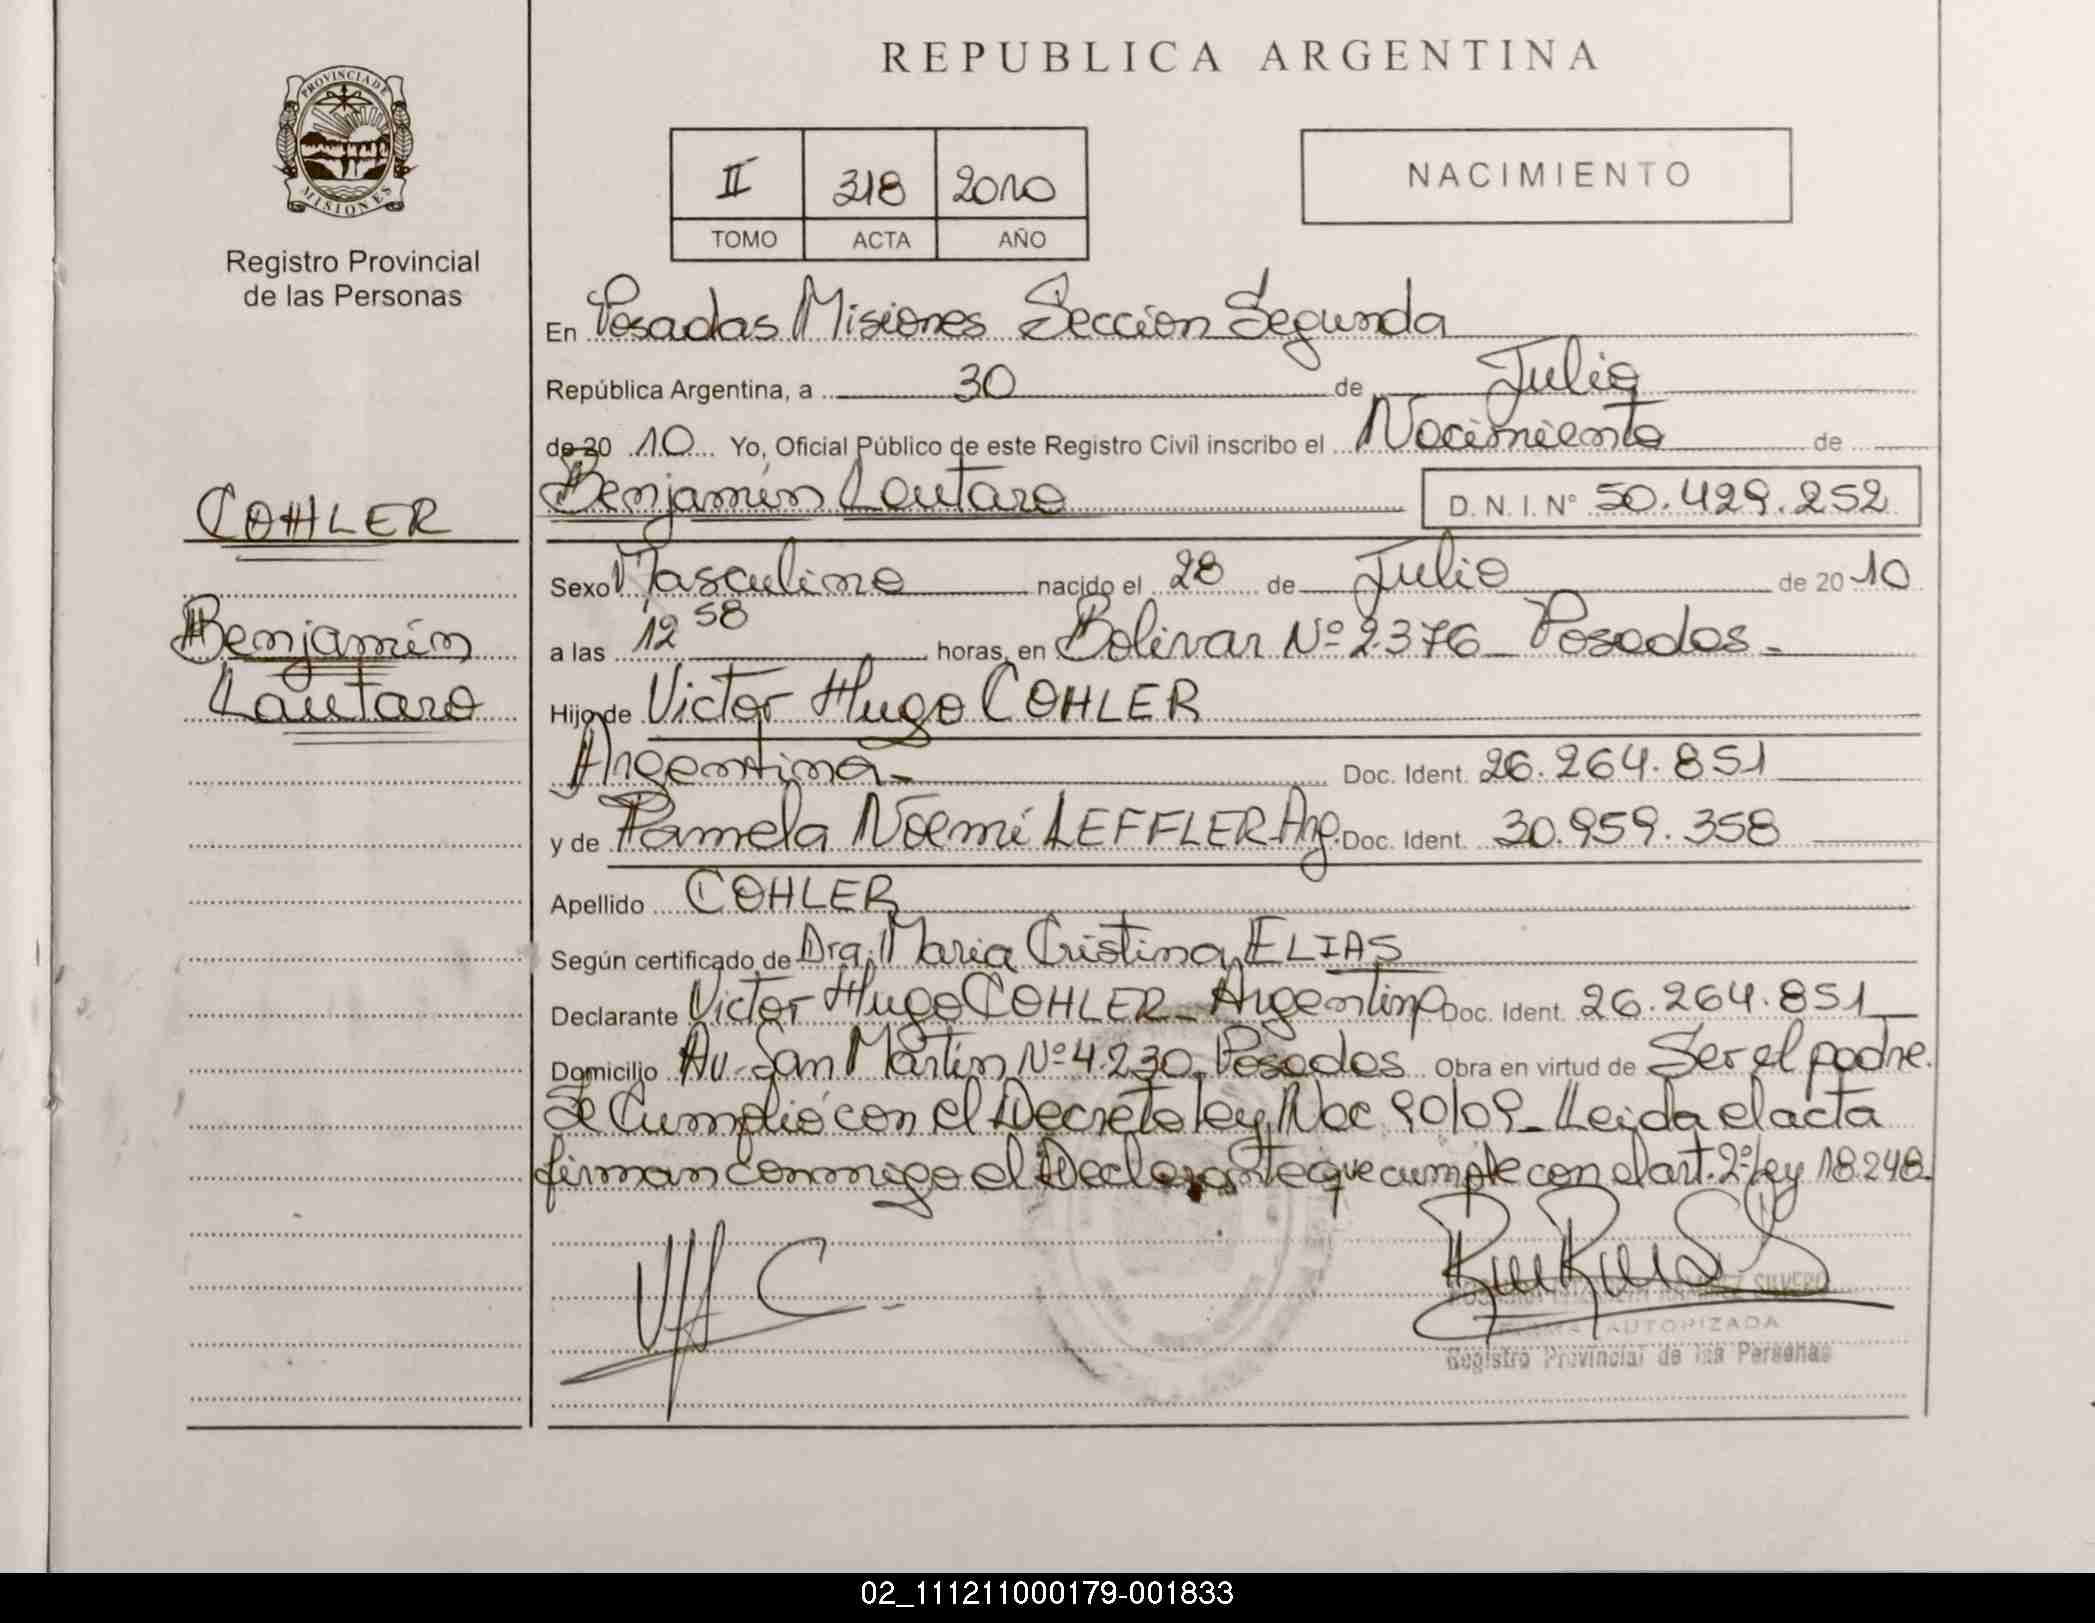 PROVINCIA DE
MISIONES
Registro Provincial
de las Personas
COHLER
Benjamín
Lautaro
REPUBLICA ARGENTINA
II 318 2010
TOMO ACTA AÑO
NACIMIENTO
En Posadas Misiones Sección Segunda
República Argentina, a 30 de Julio
de 20 10 Yo, Oficial Público de este Registro Civil inscribo el Nacimiento de
Benjamín Lautaro D. N. I. Nº 50.429.252
Sexo Masculino nacido el 28 de Julio de 20 10
a las 12 58 horas, en Bolivar Nº 2.376 _ Posadas -
Hijo de Victor Hugo COHLER
Argentina - Doc. Ident. 26.264.851
y de Pamela Noemí LEFFLER Arg. Doc. Ident. 30.959.358
Apellido COHLER
Según certificado de Dra. Maria Cristina ELIAS
Declarante Victor Hugo COHLER _ Argentino Doc. Ident. 26.264.851
Domicilio Av. San Martín Nº 4.230 Posadas Obra en virtud de Ser el padre.
Se Cumplió con el Decreto ley Nac 90/09 _ Leida el acta
firman conmigo el Declarante que cumple con el art. 2º ley 18.248.
SILVERO
FIRMA AUTORIZADA
Registro Provincial de las Personas
02_111211000179-001833